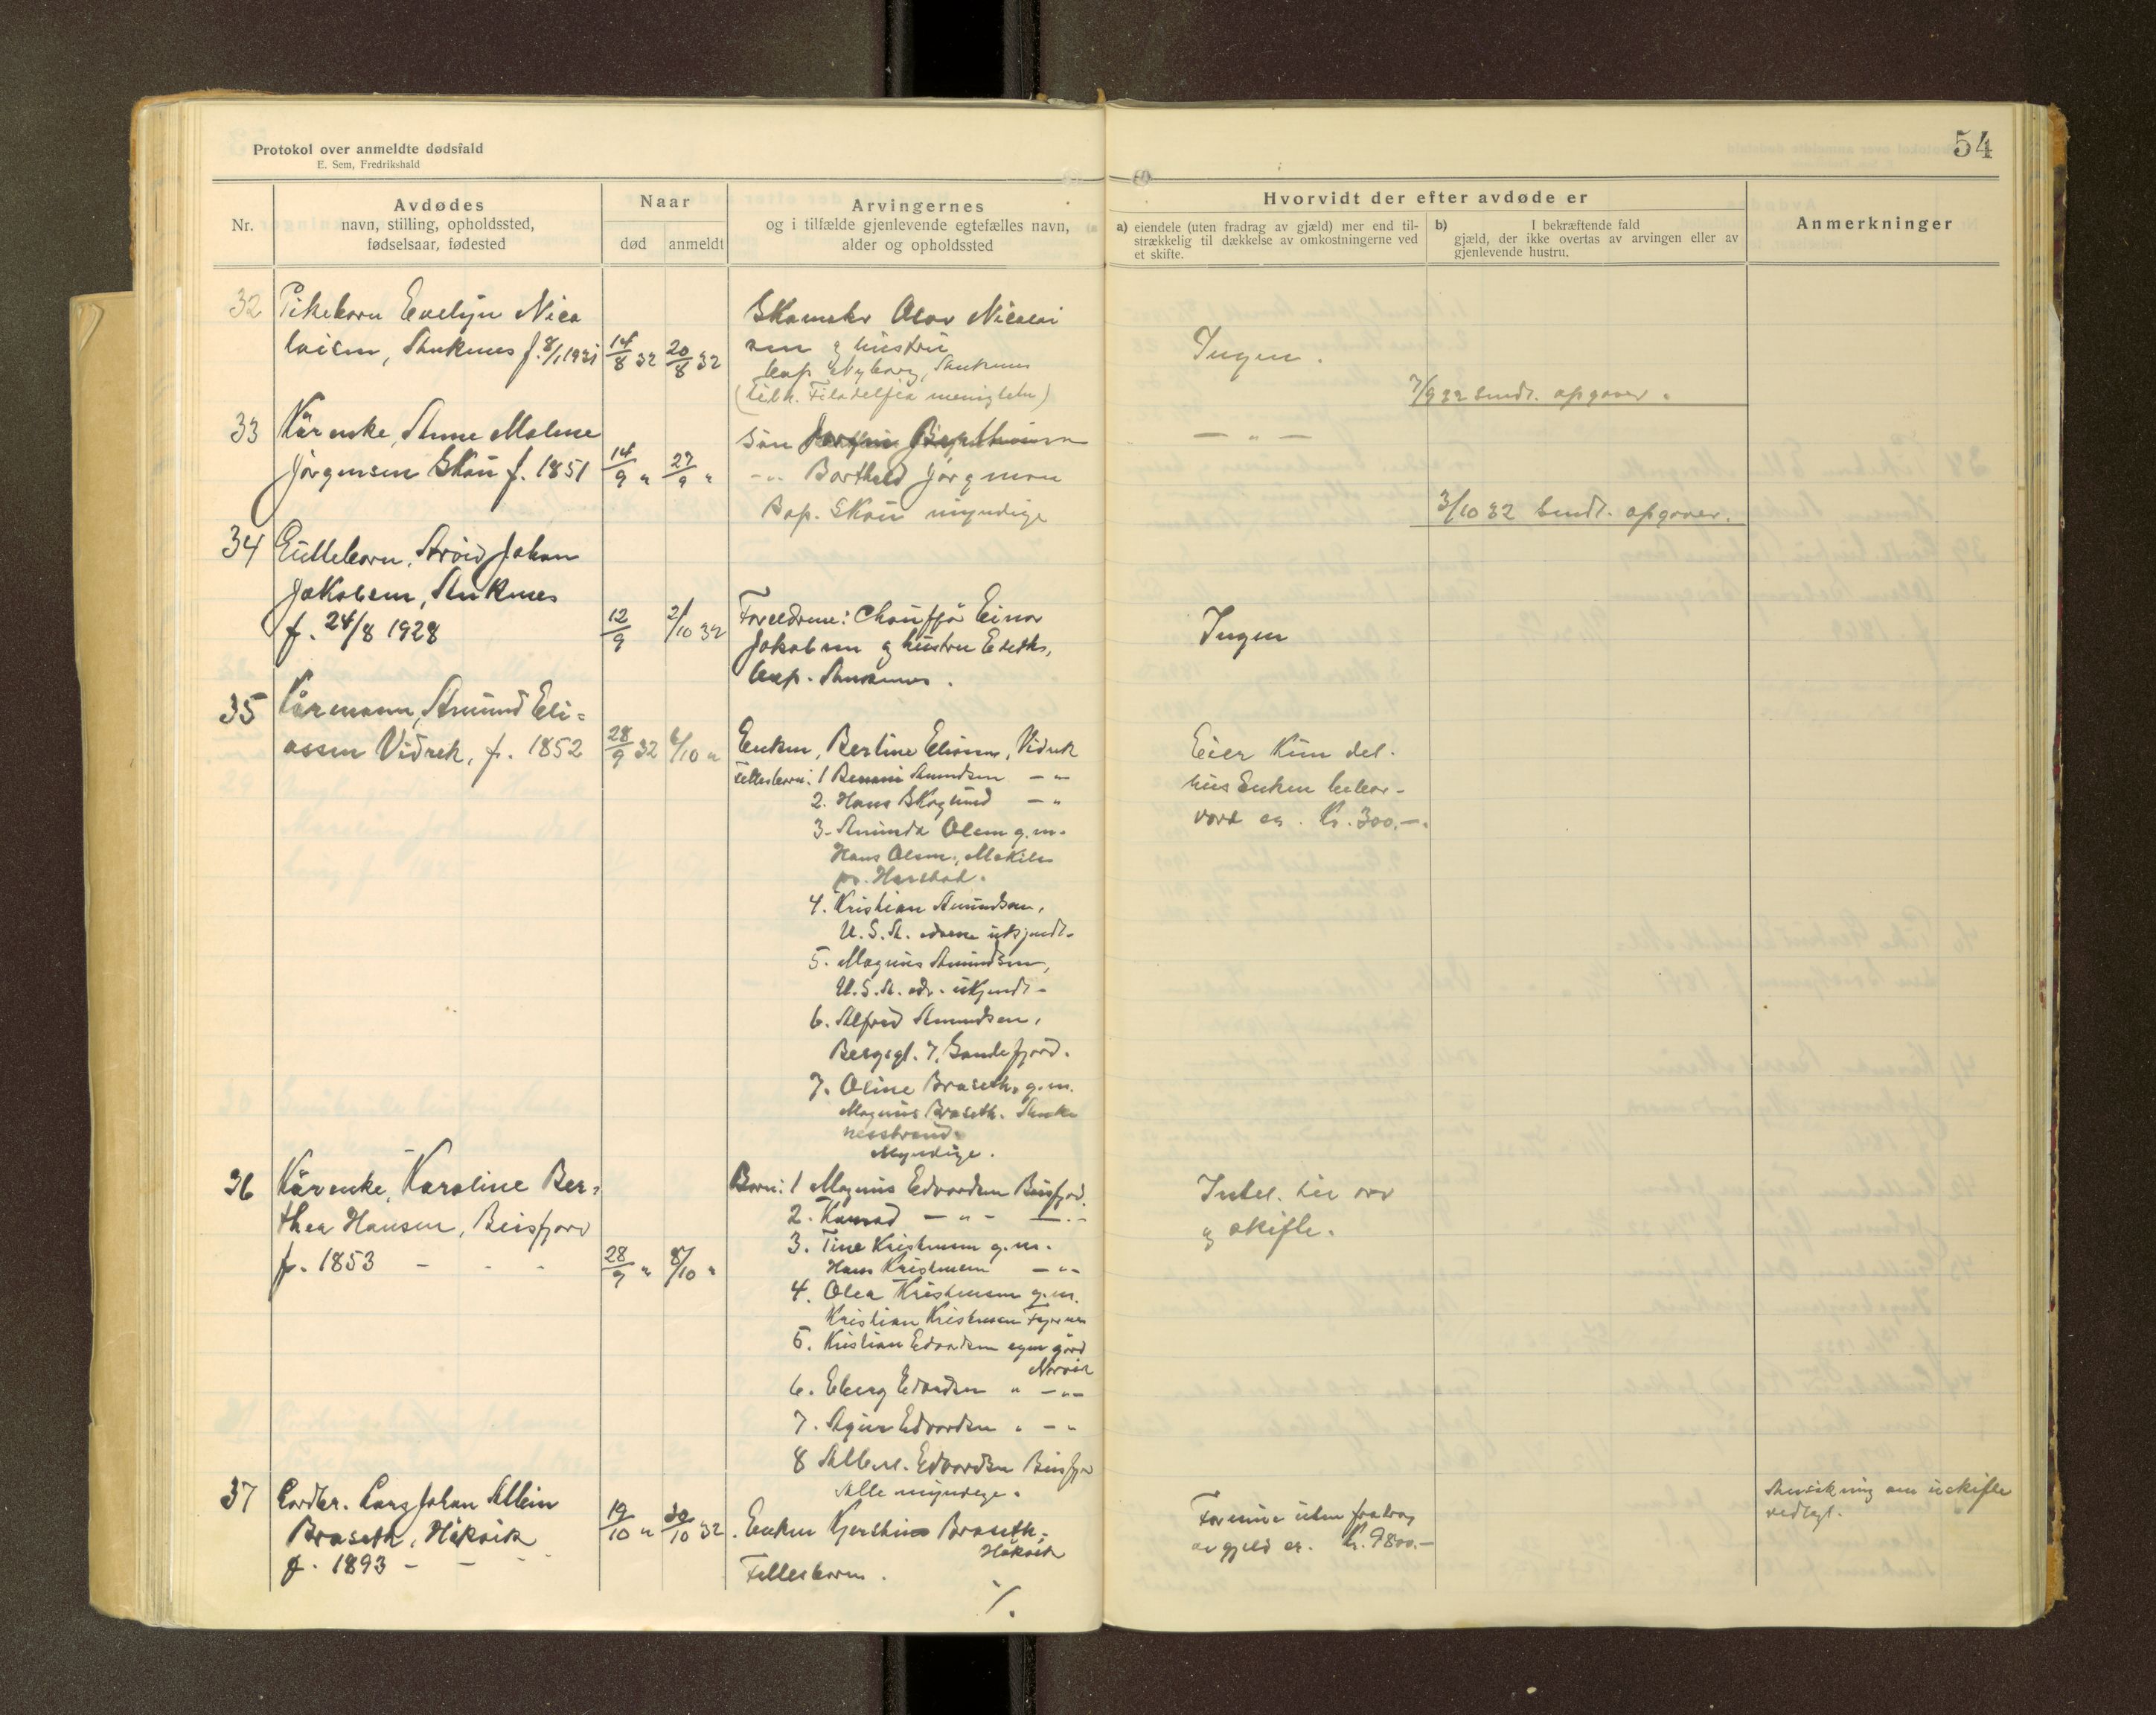 Protokol over anmeldte dødsfald
E. Sem, Fredrikshald
54
Nr.
Avdødes
navn, stilling, opholdssted,
fødselsaar, fødested
Naar
død
anmeldt
Arvingernes
og i tilfælde gjenlevende egtefælles navn,
alder og opholdssted
Hvorvidt der efter avdøde er
a) eiendele (uten fradrag av gjæld) mer end til-
strækkelig til dækkelse av omkostningerne ved
et skifte.
b) I bekræftende fald
gjæld, der ikke overtas av arvingen eller av
gjenlevende hustru.
Anmerkninger
32
Pikebarn Evelyn Nico
laisen, Ankenes f. 8/1 1931
14/8 32
20/8 32
Skomaker Olav Nicolai
sen og hustru
bop Nyborg, Ankenes
(tilh. Filadelfia menigheten)
Ingen.
7/9 32 sendt. opgaver.
33
Kårenke, Anne Maline
Jørgensen Skou f. 1851
14/9 "
27/9 "
Søn
-"- Barthold Jørgensen
Bop. Skou myndige
— " —
3/10 32 Sendt. opgaver.
34
Guttebarn, Arvid Johan
Jakobsen, Ankenes
f. 24/8 1928
12/9
2/10 32
Foreldrene: Chauffør Einar
Jakobsen og hustru Edith,
bop. Ankenes.
Ingen
35
Kårmann, Amund Eli=
assen Vidrek, f. 1852
28/9 32
6/10 "
Enken, Berline Eliassen, Vidrek
Fellesbarn: 1 Amundsen - "
2. Hans Skoglund - "
3. Aminda Olsen g.m.
Hans Olsen,
pr. Harstad.
4. Kristian Amundsen,
U.S.A. adresse ukjendt.
5. Magnus Amundsen,
U.S.A. adr. ukjendt.
6. Alfred Amundsen,
Bergsgt. 7, Sandefjord.
7. Oline Braseth, g.m.
Magnus Braseth. Anke
nesstrand.
Myndige.
Eier kun del.
hus Enken bebor
verd ca. Kr. 300.—.
36
Kårenke, Karoline Ber=
thea Hansen, Beisfjord
f. 1853 - - -
28/9 "
8/10 "
Barn: 1 Magnus Edvardsen Beisfjord.
2. Konrad - " - - " -
3. Tine Kristensen g.m.
Hans Kristensen - " -
4. Olea Kristensen g.m.
Kristian Kristensen
5. Kristian Edvardsen egen gård
Narvik
6. Eberg Edvardsen " - " -
7. Edvardsen " - "
8 Albert. Edvardsen Beisfjord
Alle myndige.
Intet. hir arv
og skifte.
37
Gardbr. Lars Johan Albin
Braseth, Håkvik
f. 1893 - - -
19/10 "
30/10 32
Enken Braseth,
Håkvik
Fellesbarn.
./.
Formue uten fradrag
av gjeld er. Kr. 9800.—
Ansøkning om uskifte
vedlagt.